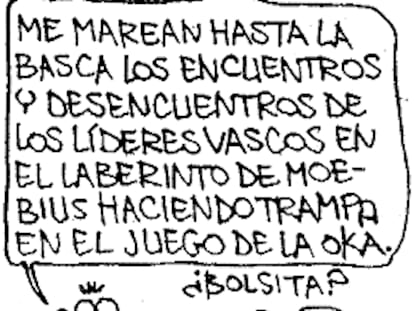 ME MAREAN HASTA LA
BASCA LOS ENCUENTROS
Y DESENCUENTROS DE
LOS LÍDERES VASCOS EN
EL LABERINTO DE MOE-
BIUS HACIENDO TRAMPA
EN EL JUEGO DE LA OKA.
¿BOLSITA?